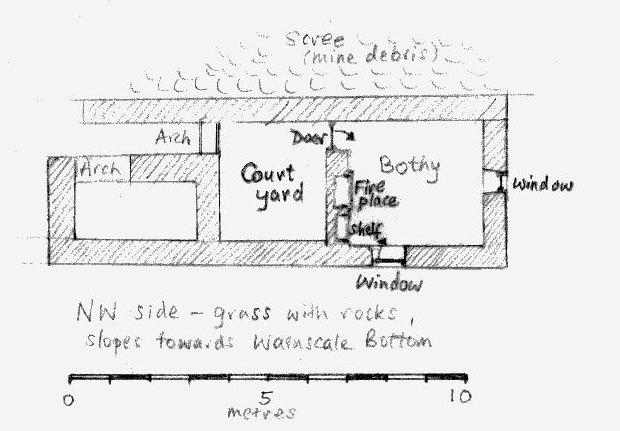 Scree
(mine debris)
Arch
Door
Arch
Court
yard
Bothy
Fire
place
Window
shelf
Window
NW side - grass with rocks,
slopes towards Warnscale Bottom
0 5 10
metres